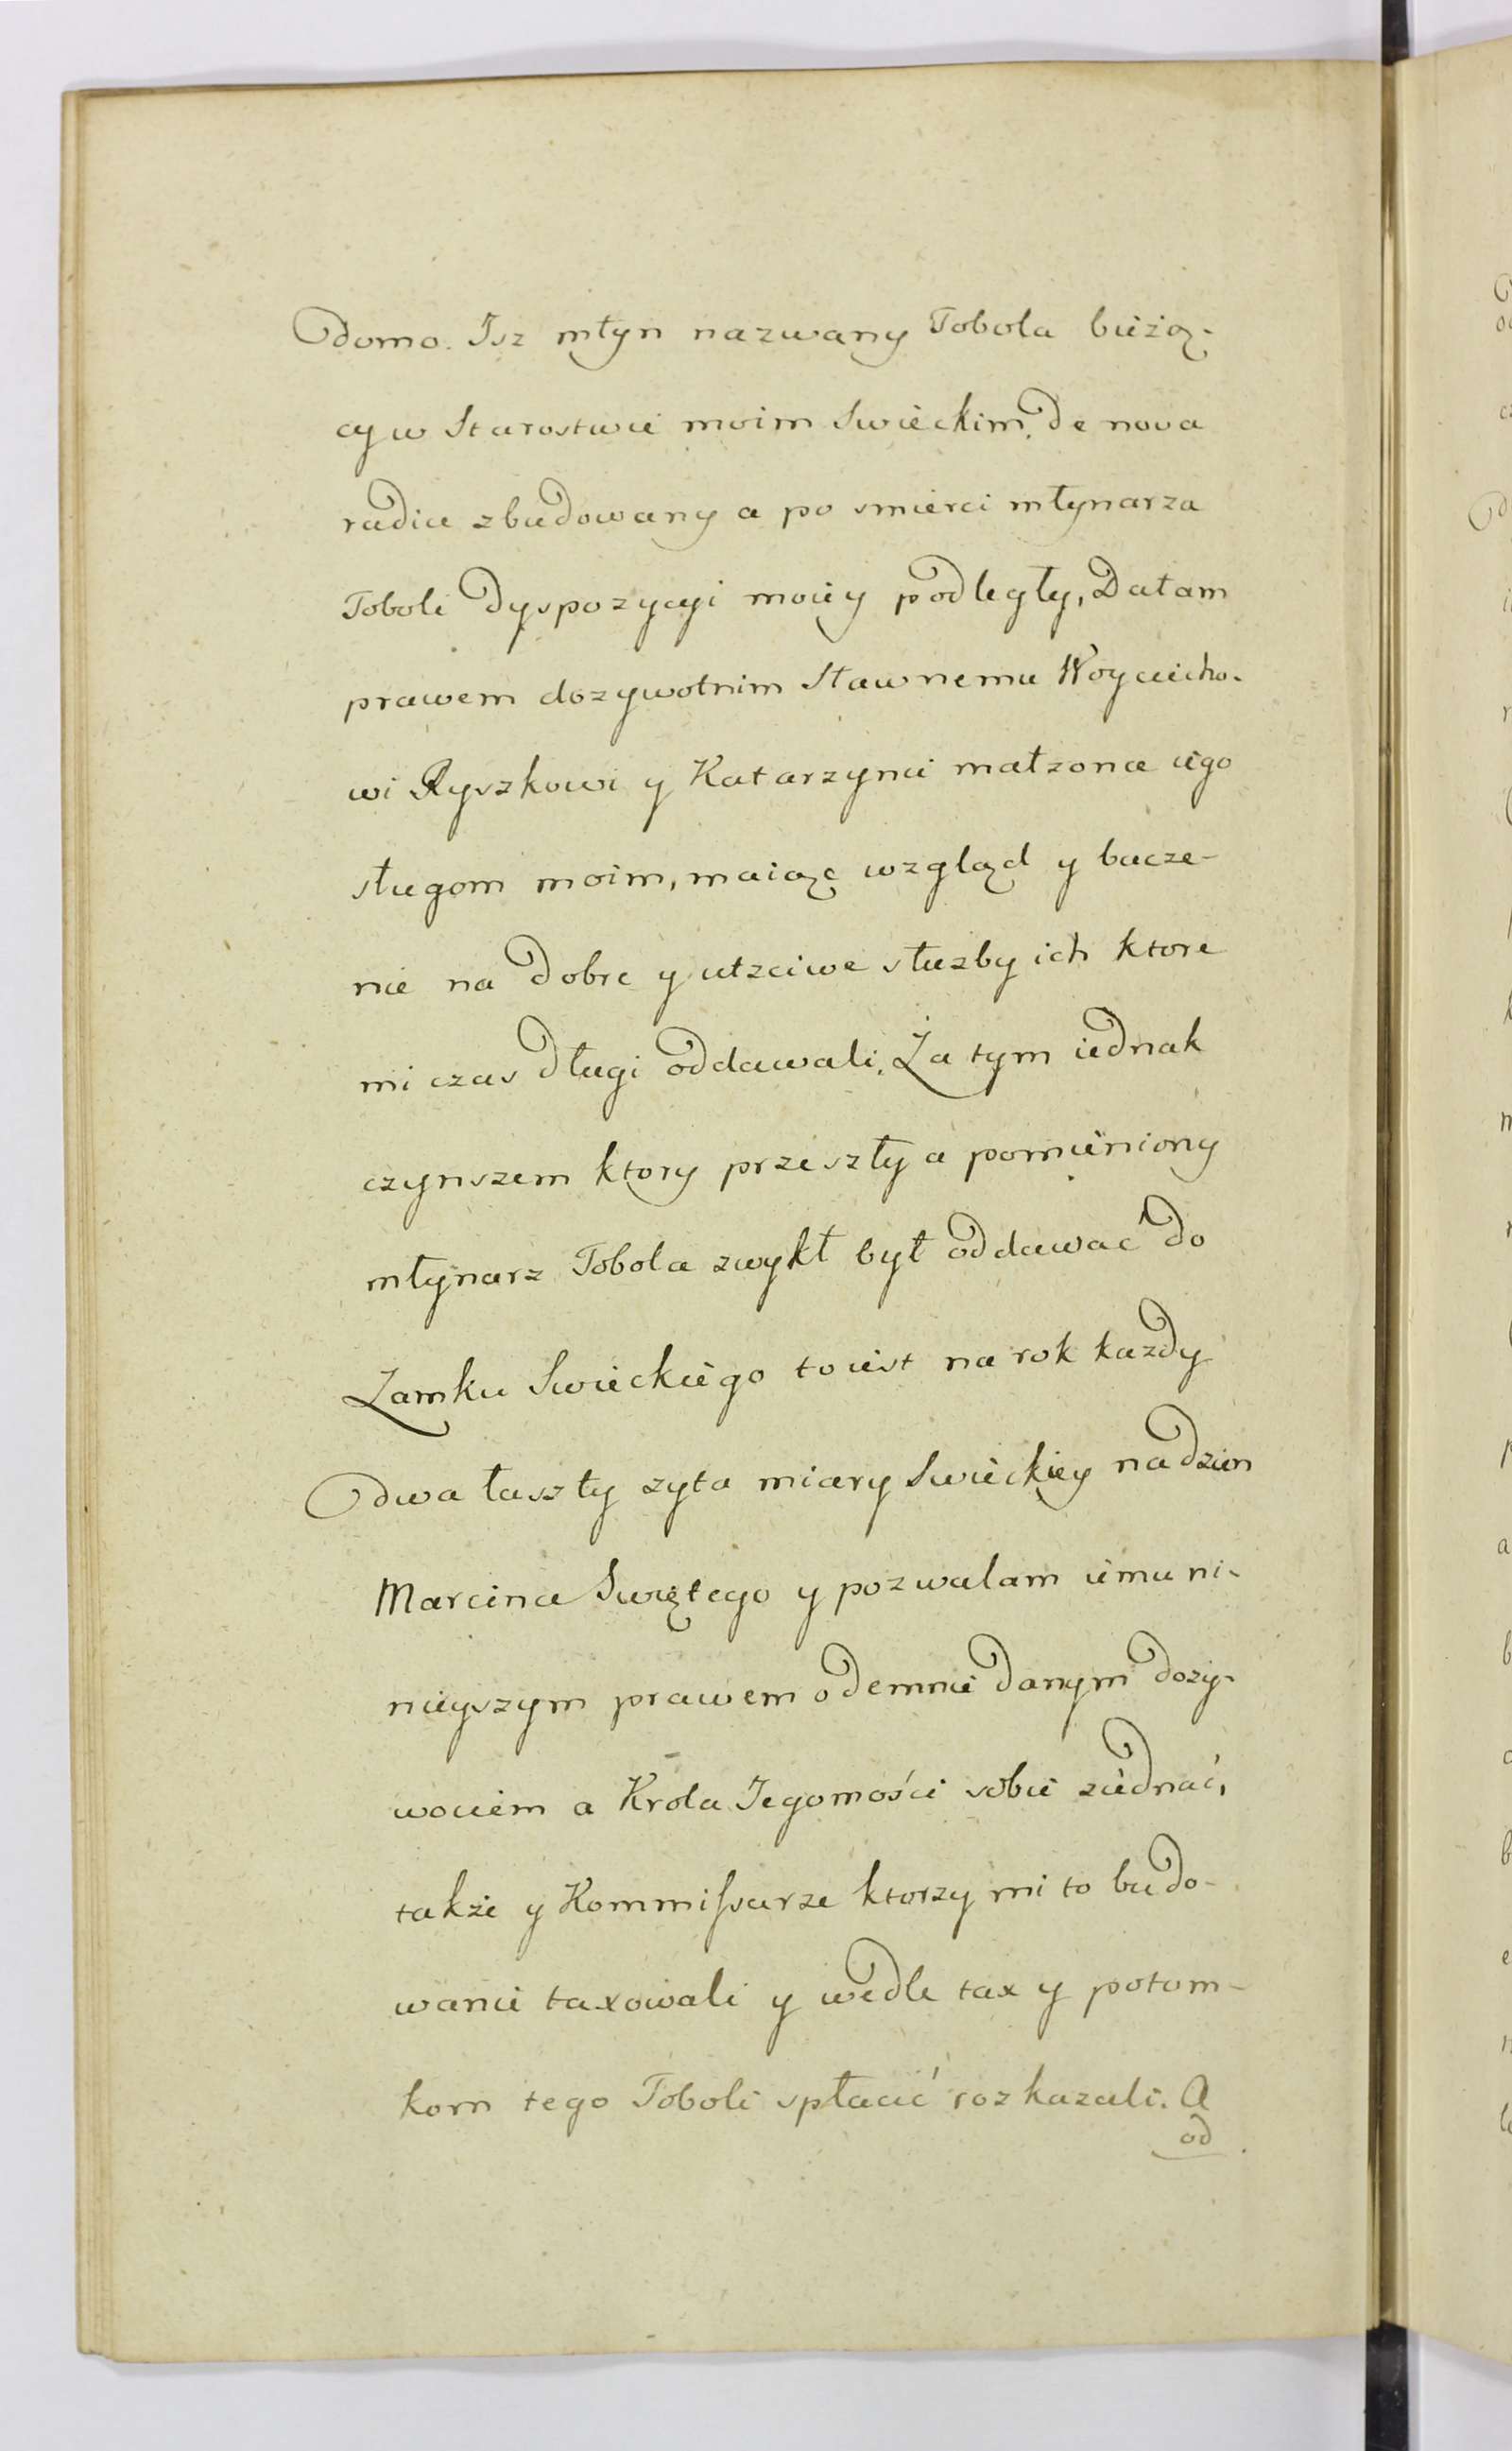 domo. Isz młyn nazwany Tobola bieżą-
cy w Starostwie moim Swieckim, de nova
radice zbudowany a po smierci młynarza
Toboli dyspozycyi moiey podległy, Dałam
prawem dozywotnim Sławnemu Woyciecho-
wi Ryszkowi y Katarzynie małzonce iego
sługom moim, maiąc wzgląd y bacze-
nie na dobre y utzciwe słuzby ich ktore
mi czas długi oddawali, Za tym iednak
czynszem ktory przeszły a pomieniony
młynarz Tobola zwykł był oddawać do
Zamku Swieckiego to iest na rok kazdy
dwa łaszty zyta miary Swieckiey na dzien
Marcina Swiętego y pozwalam iemu ni-
nieyszym prawem odemnie danym dozy-
wociem a Krola Jegomości sobie ziednać,
takze y Kommissarze ktorzy mi to budo-
wanie taxowali y wedle taxy potom-
kom tego Toboli spłacić rozkazali. A
od